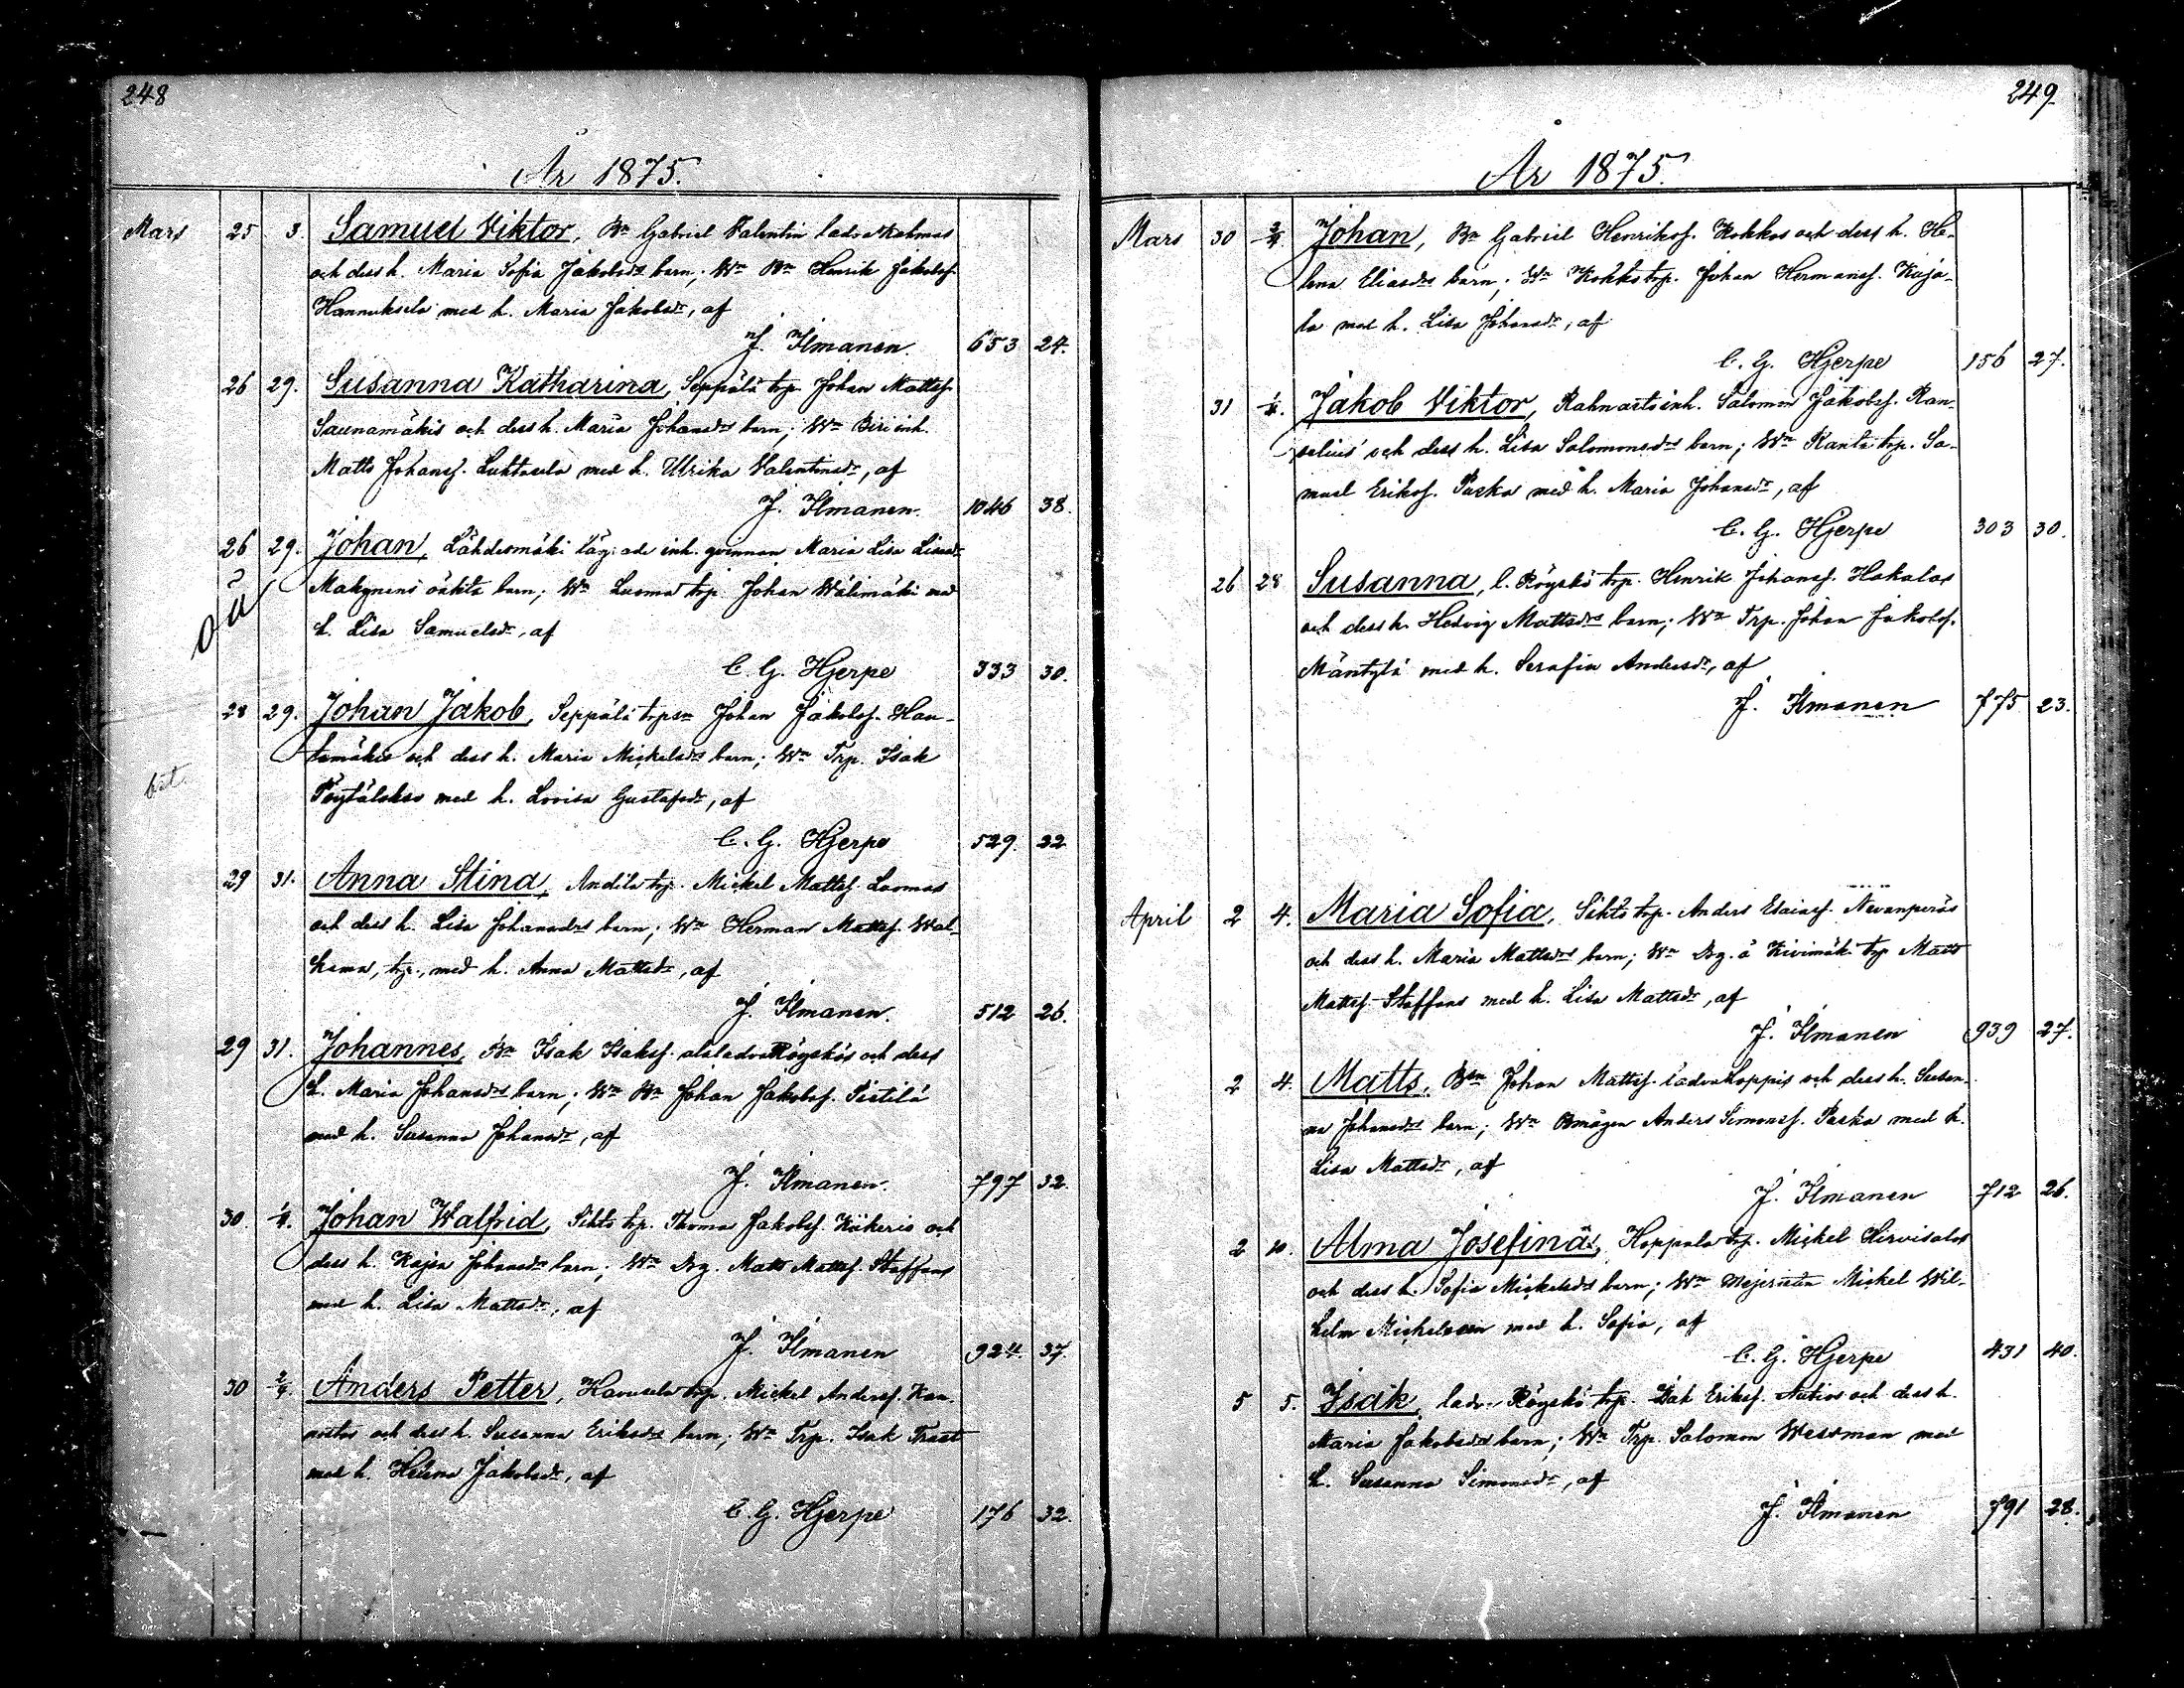 248
År 1875.
Mars 25 3. Samuel Viktor, Bn Gabriel Valentin ladvaKahmas
och dess h. Maria Sofia Jakobsdrs barn; Wn Bn Henrik Jakobsf.
Hannuksela med h. Maria Jakobsdr, af
J. Ilmanen. 653 24.
26 29. Susanna Katharina, Seppälä trp. Johan Mattsf.
Saunamäkis och dess h. Maria Johansdrs barn; Wn Biri inh.
Matts Johansf. Luhtasela med h. Ulrika Valentinsdr, af
J. Ilmanen. 1046 38.
26 29. Johan, Lähdesmäki läg: ade inh. qvinnan Maria Lisa Lisasdr
Makynens oäkta barn; Wn Luoma trp. Johan Wälimäki med
oä
h. Lisa Samuelsdr, af
C. G. Hjerpe 333 30.
28 29. Johan Jakob, Seppälä trpsn Johan Jakobsf. Hau-
tamäkis och dess h. Maria Mickelsdrs barn; Wn Trp. Isak
bet.
Pöytälaks med h. Lovisa Gustafsdr, af
C. G. Hjerpe 529. 22
29 31. Anna Stina, Andila trp. Mickel Mattsf. Luomas
och dess h. Lisa Johansdrs barn; Wn Herman Mattsf. Wal-
kama, trp., med h. Anna Mattsdr, af
J. Ilmanen. 512 26.
29 31. Johannes, Bn Isak Isaksf. alaladvaRöyskös och dess
h. Maria Johansdrs barn; Wn Bn Johan Jakobsf. Pistilä
med h. Susanna Johansdr, af
J. Ilmanen. 797 32.
30. 1/4. Johan Walfrid, Sihto trp. Thomas Jakobsf. Kiikeris och
dess h. Kajsa Johansdrs barn; Wn Drg. Matts Mattsf. Staffans
med h. Lisa Mattsdr, af
J. Ilmanen 924. 37.
30 2/4. Anders Petter, Havusela trp. Mickel Andersf. Kan-
nostos och dess h. Susanna Eriksdrs barn; Wn Trp. Isak Trast
med h. Helena Jakobsdr, af
C. G. Hjerpe 176 32.
249.
År 1875.
Mars 30 2/4. Johan, Bn Gabriel Henriksf. Kokkos och dess h. He-
lena Eliasdrs barn; Wn Kokko trp. Johan Hermansf. Kuja-
la med h. Lisa Johansdr, af
C. G. Hjerpe 156 27.
31 1/4. Jakob Viktor, Rahnasto inh. Salomon Jakobsf. Ran-
och dess h. Lisa Salomonsdrs barn; Wn Ranta trp. Sa-
muel Eriksf. Paska med h. Maria Johansdr, af
C. G. Hjerpe 303 30.
26 28 Susanna, l. Röyskö trp. Henrik Johansf. Hakalas
och dess h. Hedvig Mattsdrs barn; Wn Trp. Johan Jakobsf.
Mäntylä med h. Serafia Andersdr, af
J. Ilmanen 775 23.
April 2 4. Maria Sofia, Sihto trp. Anders Esaiasf. Nevanperäs
och dess h. Maria Mattsdrs barn; Wn Drg. å Kivimäki trp Matts
Mattsf. Staffans med h. Lisa Mattsdr, af
J. Ilmanen 939 27.
2 4. Matts, Bsn Johan Mattsf. ladvaKoppis och dess h. Susan-
na Johansdrs barn; Wn Bmågen Anders Simonsf. Paska med h.
Lisa Mattsdr, af
J. Ilmanen 712 26.
2 10. Alma Josefina, Hoppala trp. Mickel Hirvisalos
och dess h. Sofia Mickelsdrs barn; Wn Mejeristen Mickel Wil-
helm Mickelsson med h. Sofia, af
C. G. Hjerpe 431 40.
5 5. Isak, ladv. Röyskö trp. Isak Eriksf. Autios och dess h.
Maria Jakobsdrs barn; Wn Trp. Salomon Wessman med
h. Susanna Simonsdr, af
J. Ilmanen 791 28.